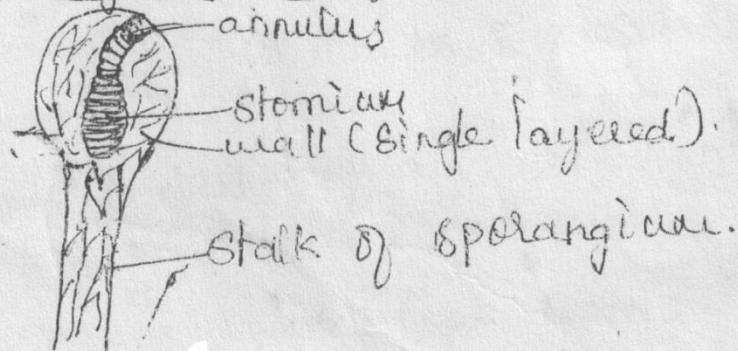 annulus
stomium
wall (single layered).
stalk of sporangium.